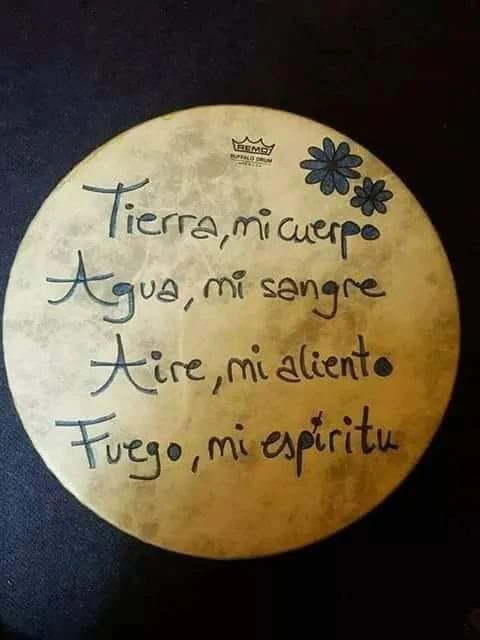 REMO
BUFFALO DRUM
Tierra, mi cuerpo
Agua, mi sangre
Aire, mi aliento
Fuego, mi espíritu